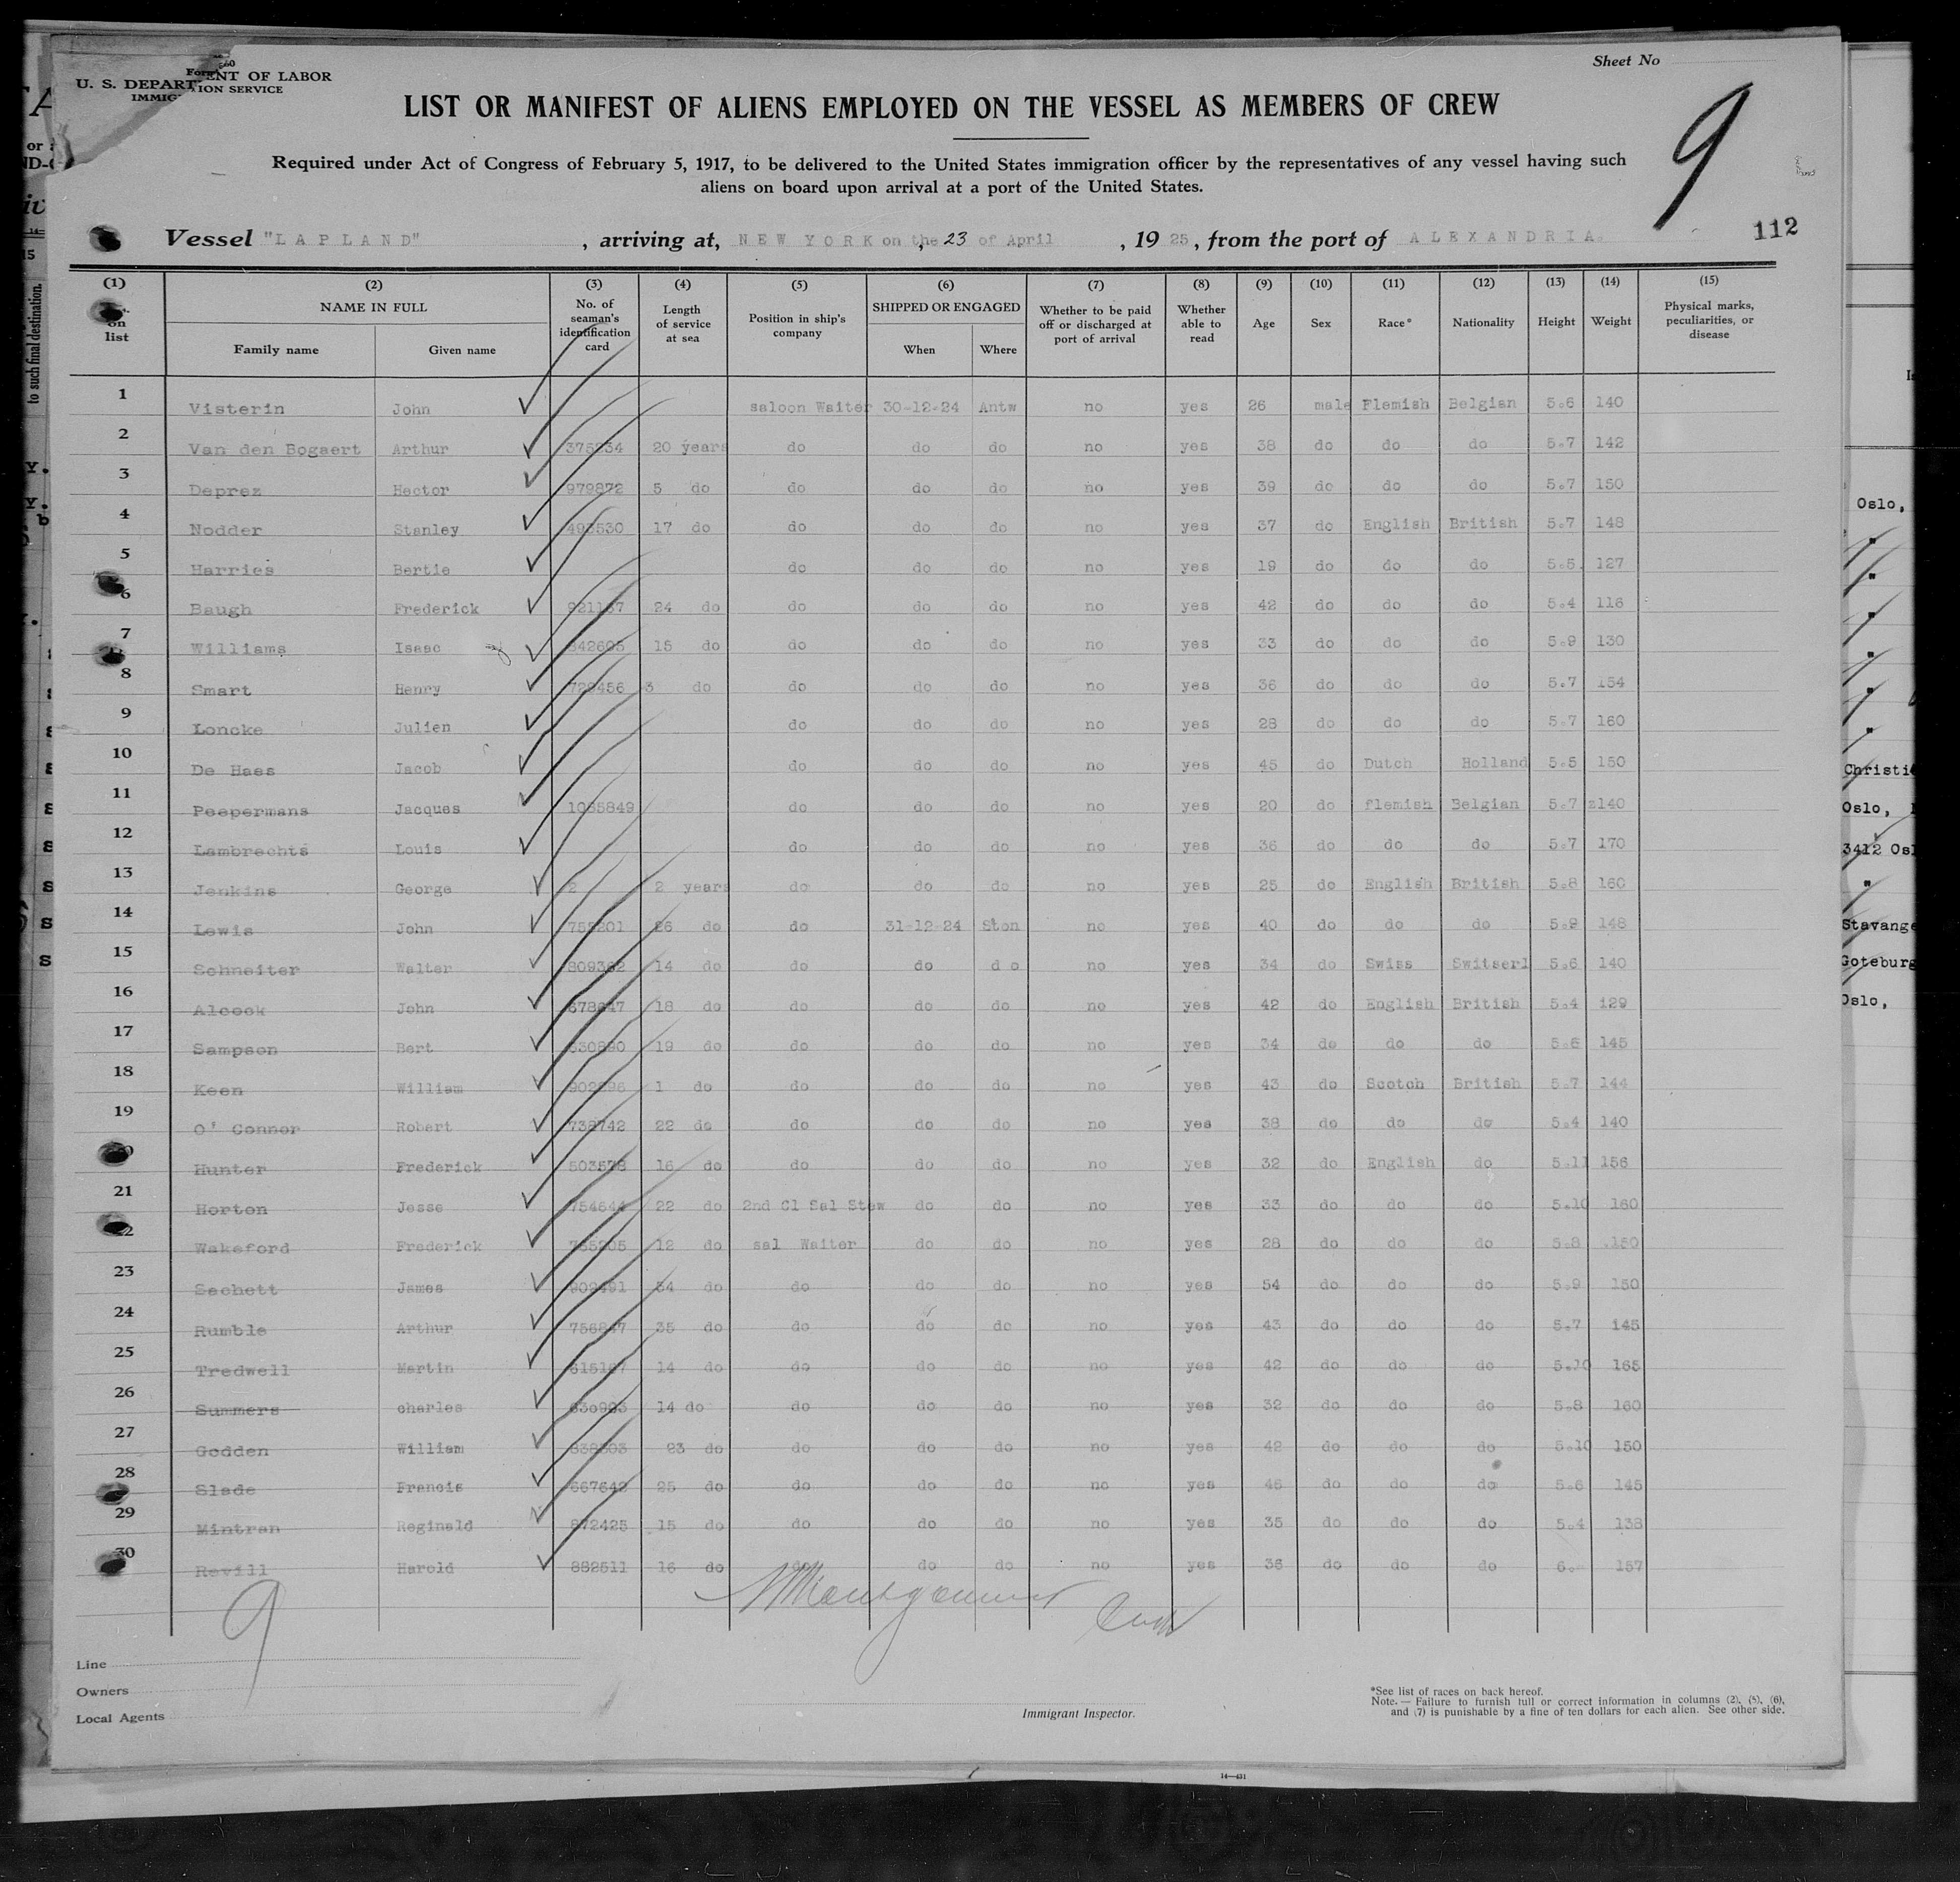 Form 660
U. S. DEPARTMENT OF LABOR
IMMIGRATION SERVICE
Sheet No
LIST OR MANIFEST OF ALIENS EMPLOYED ON THE VESSEL AS MEMBERS OF CREW
9
Required under Act of Congress of February 5, 1917, to be delivered to the United States immigration officer by the representatives of any vessel having such
aliens on board upon arrival at a port of the United States.
112
Vessel "LAPLAND", arriving at, NEW YORK on the 23 of April, 1925, from the port of ALEXANDRIA.
(1) (2) (3) (4) (5) (6) (7) (8) (9) (10) (11) (12) (13) (14) (15)
on list NAME IN FULL Family name Given name No. of seaman's identification card Length of service at sea Position in ship's company SHIPPED OR ENGAGED When Where Whether to be paid off or discharged at port of arrival Whether able to read Age Sex Race* Nationality Height Weight Physical marks, peculiarities, or disease
1 Visterin John saloon Waiter 30-12-24 Antw no yes 26 male Flemish Belgian 5.6 140
2 Van den Bogaert Arthur 375234 20 years do do do no yes 38 do do do 5.7 142
3 Deprez Hector 979872 5 do do do do no yes 39 do do do 5.7 150
4 Nodder Stanley 17 do do do do no yes 37 do English British 5.7 148
5 Harries Bertie do do do no yes 19 do do do 5.5. 127
6 Baugh Frederick 24 do do do do no yes 42 do do do 5.4 116
7 Williams Isaac 15 do do do do no yes 33 do do do 5.9 130
8 Smart Henry 3 do do do do no yes 36 do do do 5.7 154
9 Loncke Julien do do do no yes 28 do do do 5.7 160
10 De Haes Jacob do do do no yes 45 do Dutch Holland 5.5 150
11 Peepermans Jacques do do do no yes 20 do flemish Belgian 5.7 140
12 Lambrechts Louis do do do no yes 36 do do do 5.7 170
13 Jenkins George 2 2 years do do do no yes 25 do English British 5.8 160
14 Lewis John 26 do do 31-12-24 Ston no yes 40 do do do 148
15 Schneiter Walter 14 do do do do no yes 34 do Swiss Switserl 5.6 140
16 Alcock John 18 do do do do no yes 42 do English British 5.4 129
17 Sampson Bert 19 do do do do no yes 34 do do do 5.6 145
18 Keen William 1 do do do do no yes 43 do Scotch British 5.7 144
19 O' Connor Robert 22 do do do do no yes 38 do do do 5.4 140
20 Hunter Frederick 16 do do do do no yes 32 do English do 5.11 156
21 Horton Jesse 754644 22 do 2nd Cl Sal Stew do do no yes 33 do do do 5.10 160
22 Wakeford Frederick 12 do sal Waiter do do no yes 28 do do do 5.8 150
23 Sachett James do do do do no yes 54 do do do 5.9 150
24 Rumble Arthur 756847 35 do do do do no yes 43 do do do 5.7 145
25 Tredwell Martin 14 do do do do no yes 42 do do do 5.10 165
26 Summers charles 14 do do do do no yes 32 do do do 5.8 160
27 Godden William 23 do do do do no yes 42 do do do 5.10 150
28 Slade Francis 667642 25 do do do do no yes 46 do do do 5.6 145
29 Mintren Reginald 872425 15 do do do do no yes 35 do do do 5.4 138
30 Revill Harold 882511 16 do do do do no yes 36 do do do 6.- 157
9
Line
Owners
Local Agents
Immigrant Inspector.
*See list of races on back hereof.
Note.— Failure to furnish full or correct information in columns (2), (5), (6),
and (7) is punishable by a fine of ten dollars for each alien. See other side.
14—431
to such final destination.
Oslo,
Oslo,
3412
Oslo,